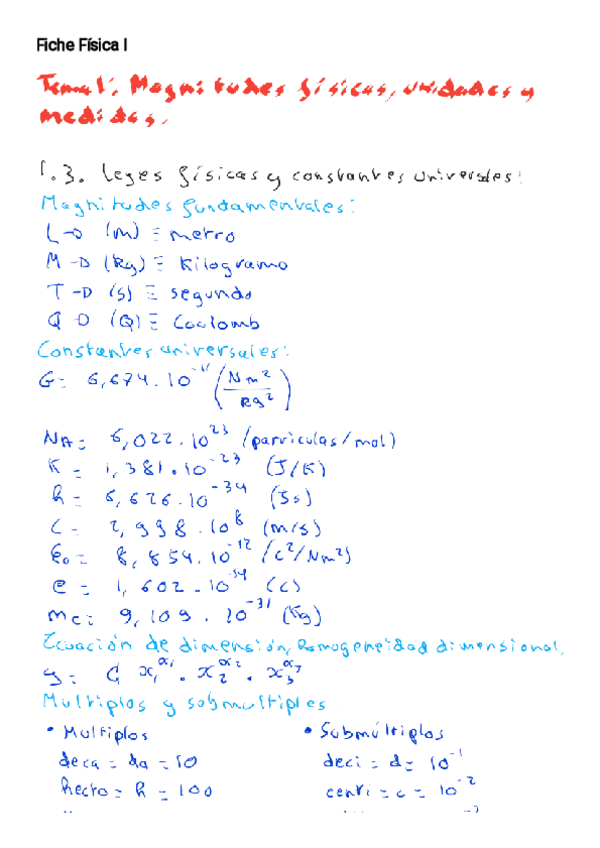 Fiche Física I
Tema 1: Magnitudes físicas, unidades y
medidas.
1.3. Leyes físicas y constantes universales:
Magnitudes fundamentales:
L → (m) ≡ metro
M → (kg) ≡ Kilogramo
T → (s) ≡ segundo
Q → (Q) ≡ Coolomb
Constantes universales:
G = 6,674 · 10⁻¹¹ (Nm²/kg²)
NA = 6,022 · 10²³ (partículas/mol)
K = 1,381 · 10⁻²³ (J/K)
h = 6,626 · 10⁻³⁴ (Js)
C = 2,998 · 10⁸ (m/s)
ε₀ = 8,854 · 10⁻¹² (C²/Nm²)
e = 1,602 · 10 (C)
me = 9,109 · 10⁻³¹ (Kg)
Ecuación de dimensión, homogeneidad dimensional.
y = C x₁^α₁ · x₂^α₂ · x₃^α₃
Multiplos y submultiples.
• Multiplos
• Submúltiplos
deca = da = 10
deci = d = 10⁻¹
hecto = h = 100
centi = c = 10⁻²